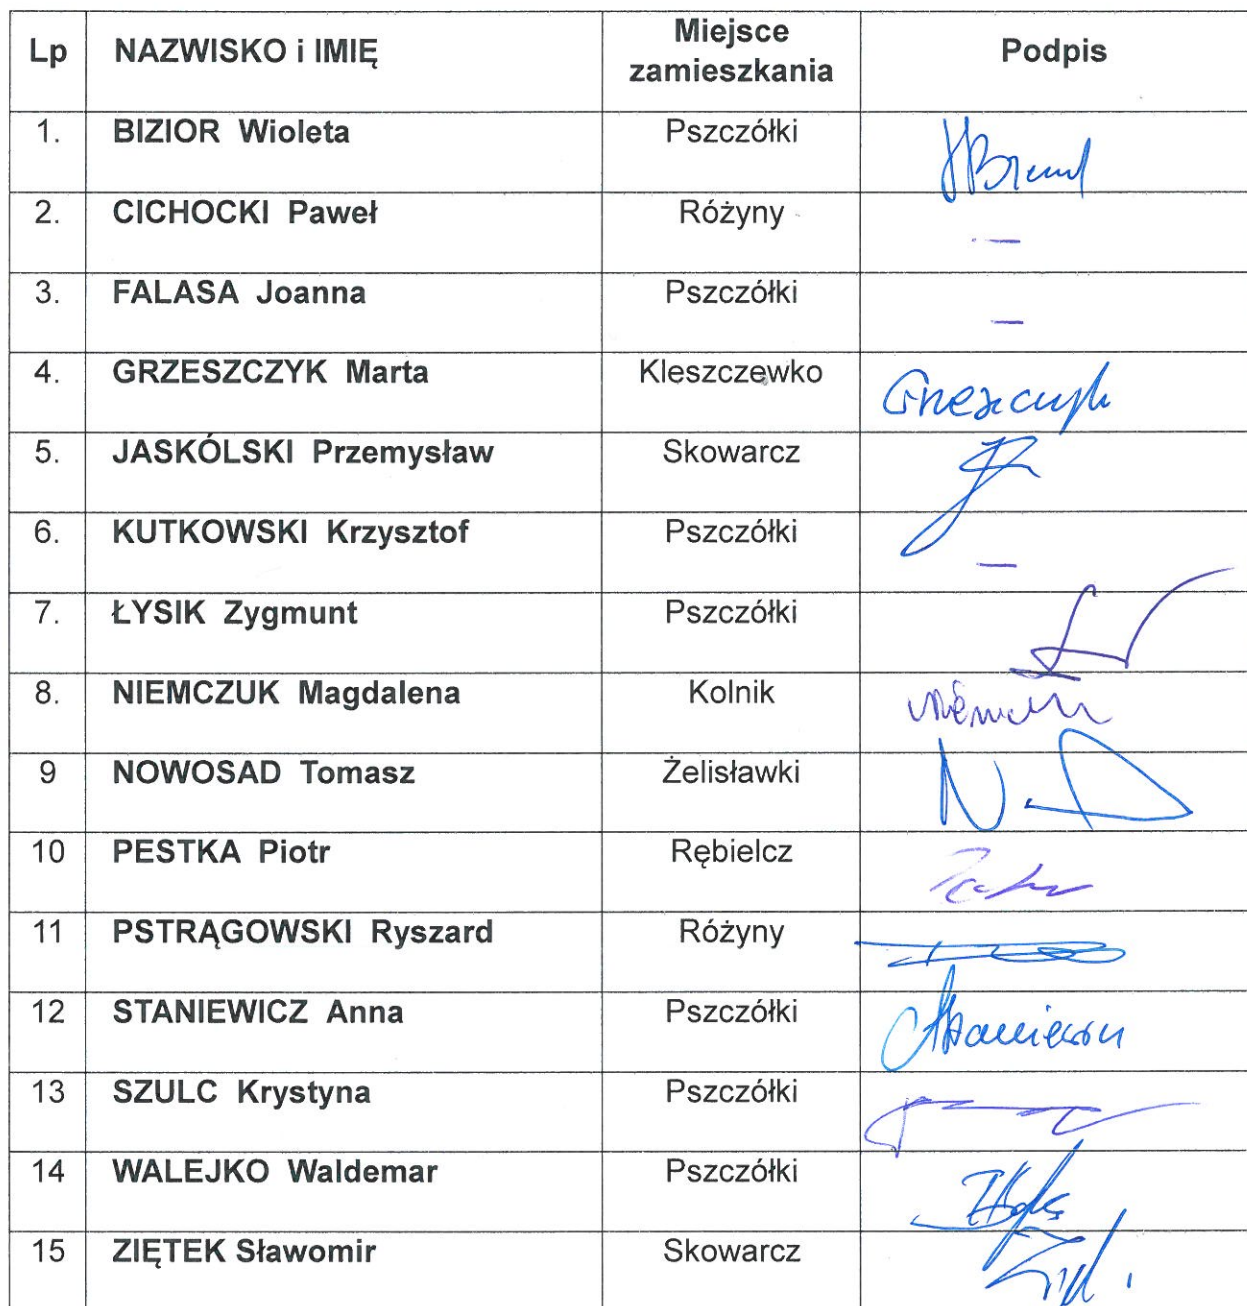 Lp NAZWISKO i IMIĘ Miejsce zamieszkania Podpis
1. BIZIOR Wioleta Pszczółki
2. CICHOCKI Paweł Różyny —
3. FALASA Joanna Pszczółki —
4. GRZESZCZYK Marta Kleszczewko
5. JASKÓLSKI Przemysław Skowarcz
6. KUTKOWSKI Krzysztof Pszczółki —
7. ŁYSIK Zygmunt Pszczółki
8. NIEMCZUK Magdalena Kolnik
9 NOWOSAD Tomasz Żelisławki
10 PESTKA Piotr Rębielcz
11 PSTRĄGOWSKI Ryszard Różyny
12 STANIEWICZ Anna Pszczółki
13 SZULC Krystyna Pszczółki
14 WALEJKO Waldemar Pszczółki
15 ZIĘTEK Sławomir Skowarcz